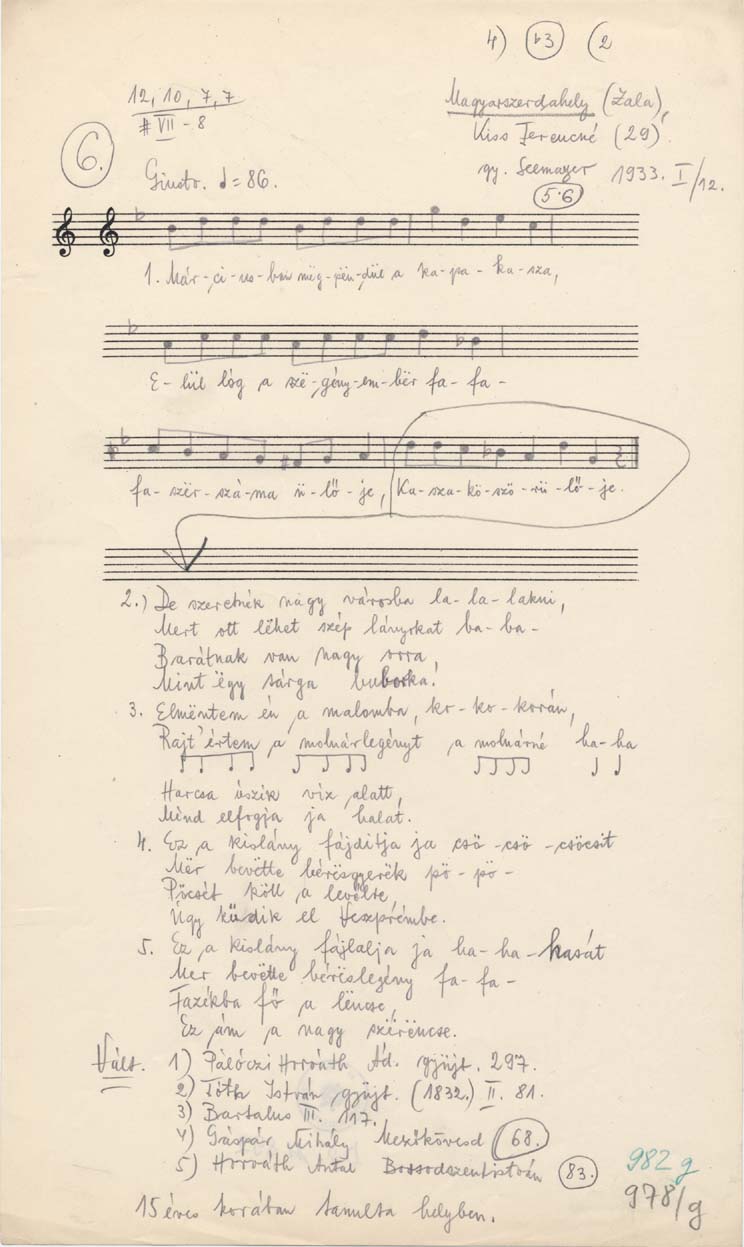 4) (♭3) (2
12, 10, 7, 7
# VII - 8
Magyarszerdahely (Zala),
Kiss Ferencné (29)
6.
Giusto. ♩= 86.
gy. Seemayer 1933. I/12.
5·6
1. Már-ci-us-ban mëg-pën-dül a ka-pa-ka-sza,
E-lül lóg a szë-gény-em-bër fa-fa-
fa-szër-szá-ma ü-lő-je, Ka-sza-kö-szö-rü-lő-je.
2.) De szeretnék nagy városba la-la-lakni,
Mert ott lëhet szép lányokat ba-ba-
Barátnak van nagy orra,
Mint ëgy sárga buborka.
3. Elmëntem én a malomba, ko-ko-korán,
Rajt'értem a molnárlegényt a molnárné ha-ha
Harcsa úszik víz alatt,
Mind elfogja ja halat.
4. Ez a kislány fájdítja ja csö-csö-csöcsit
Mër bevëtte bérësgyerëk pö-pö-
Pöcsét köll a levélre,
Úgy küdik el Veszprémbe.
5. Ez a kislány fájlalja ja ha-ha-hasát
Mer bevëtte bérëslegény fa-fa-
Fazékba fő a lëncse,
Ez ám a nagy szërëncse.
Vált. 1) Pálóczi Horváth Ád. gyüjt. 297.
2) Tóth István gyüjt. (1832.) II. 81.
3) Bartalus III. 117.
4) Gáspár Mihály Mezőkövesd 68.
5) Horváth Antal Borsodszentistván 83.
982 g
978/g
15 éves korában tanulta helyben.